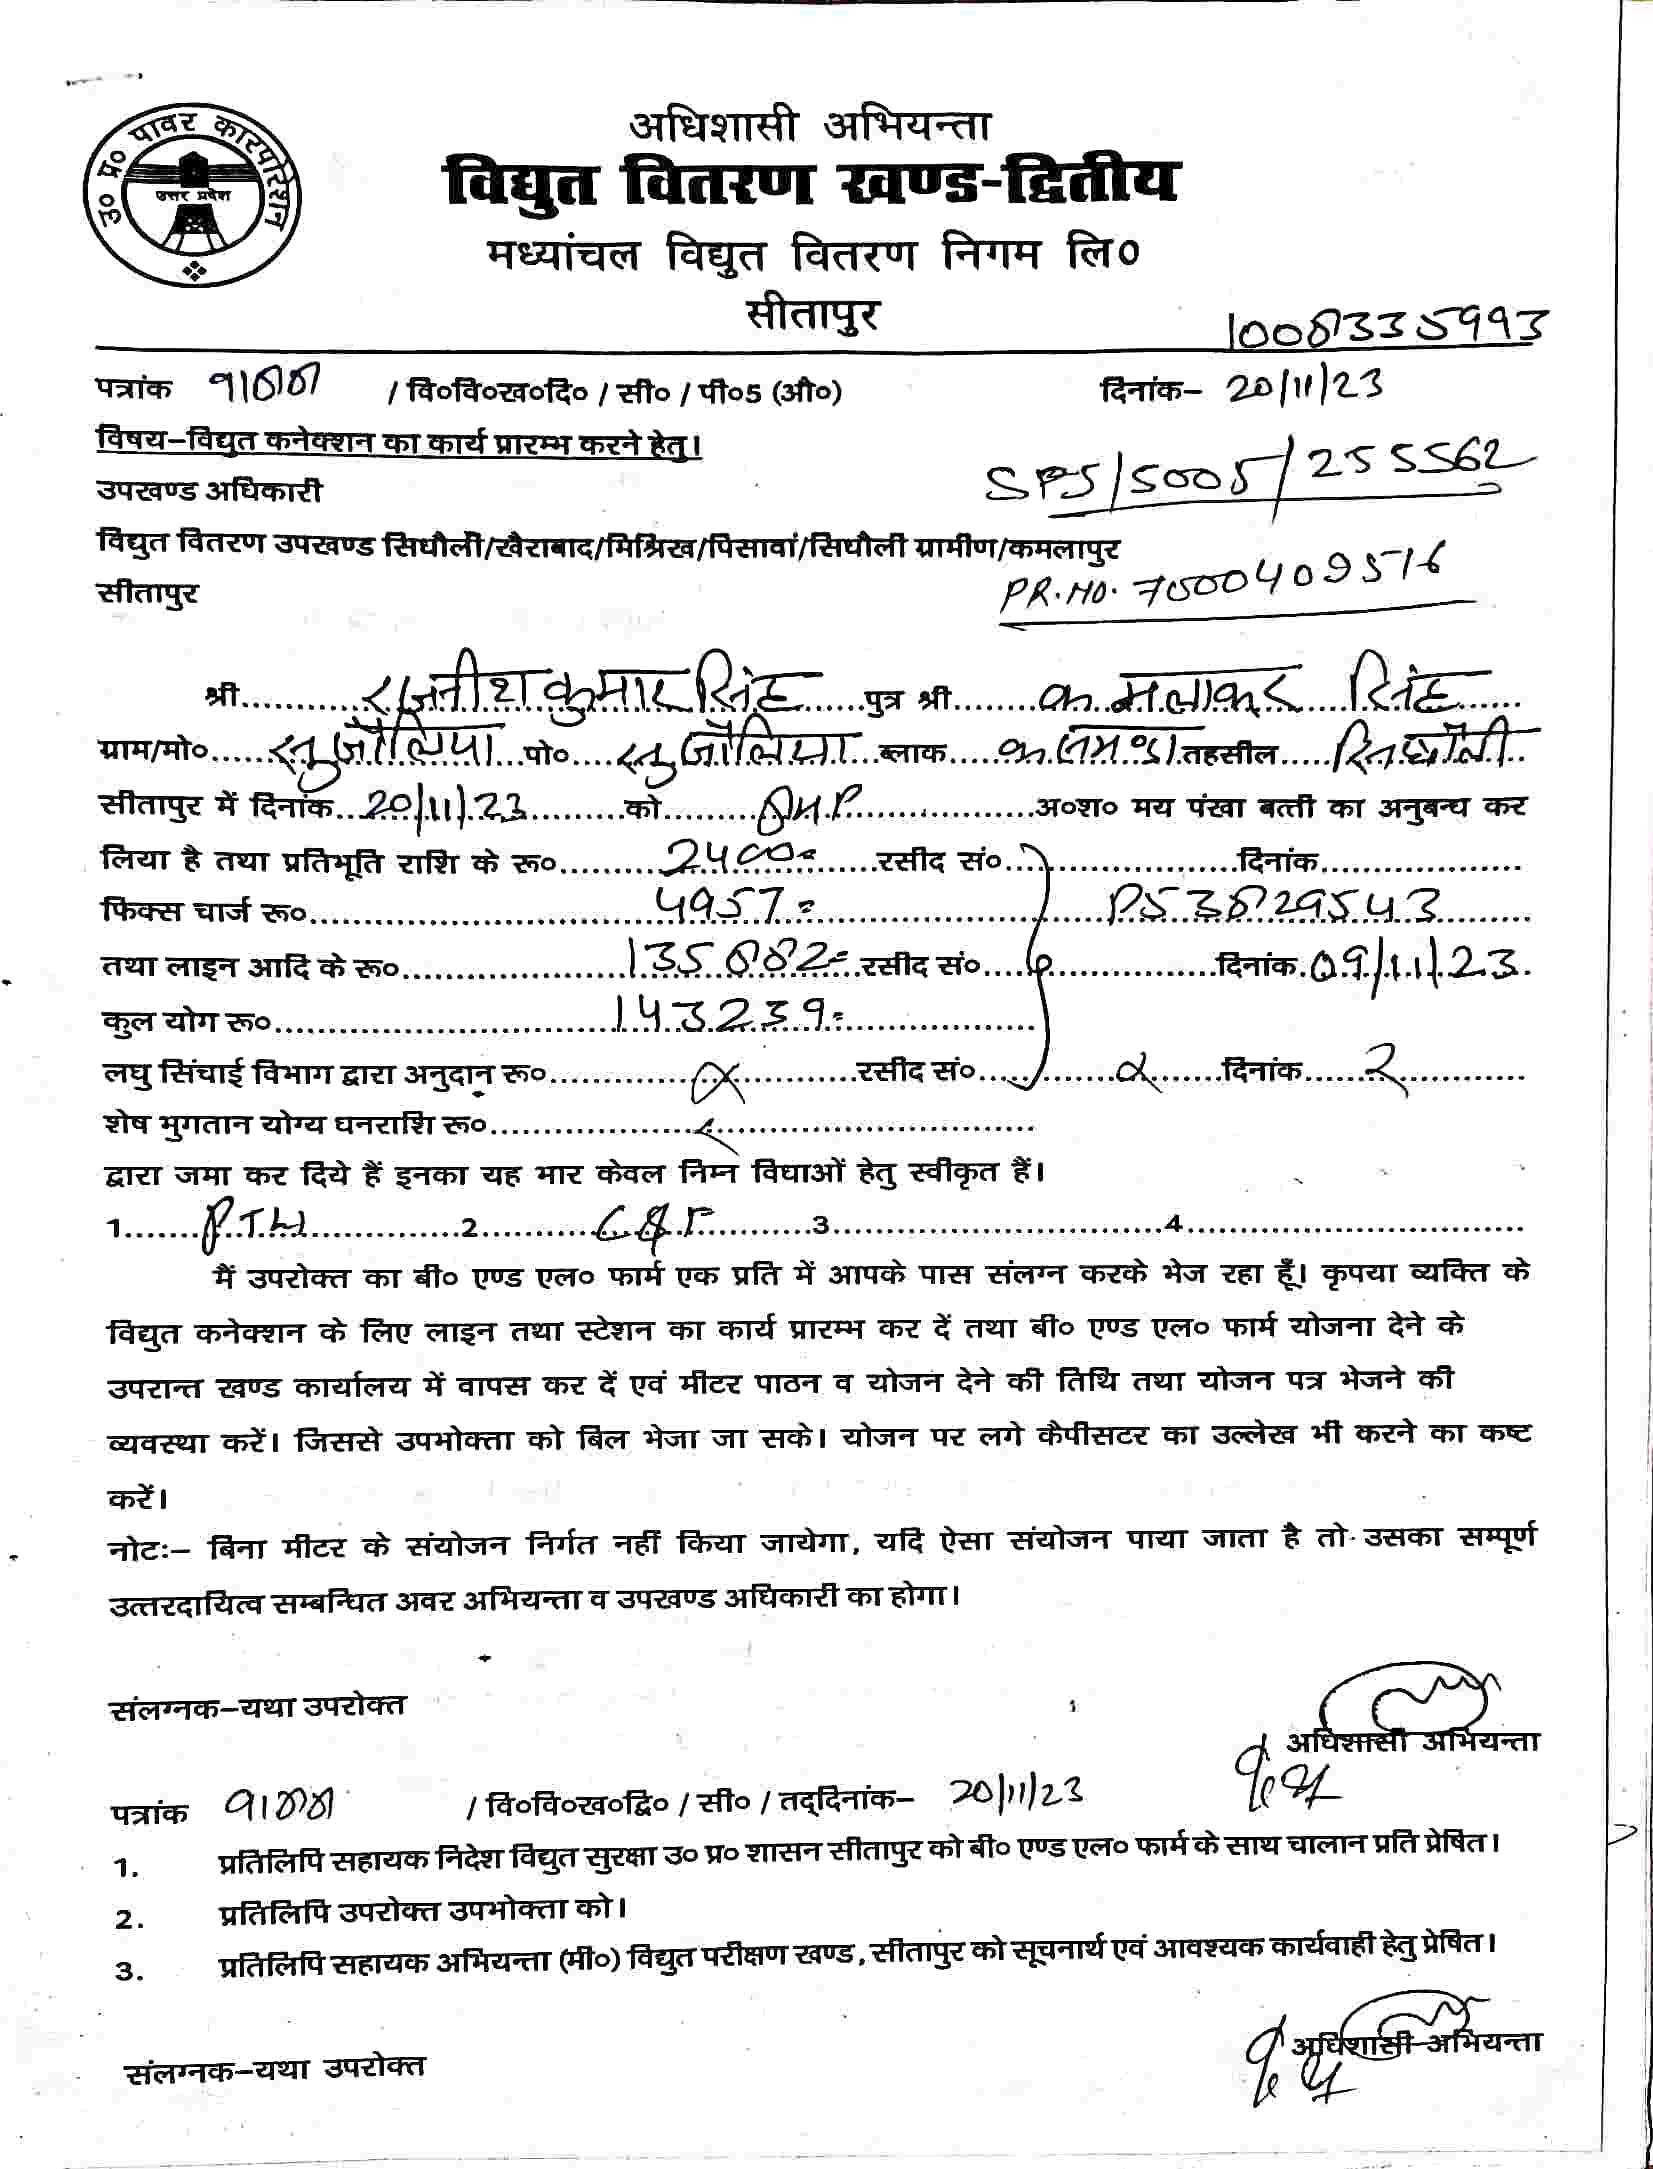 उ० प्र० पावर कारपोरेशन
उत्तर प्रदेश
अधिशासी अभियन्ता
विद्युत वितरण खण्ड-द्वितीय
मध्यांचल विद्युत वितरण निगम लि०
सीतापुर
10083335993
पत्रांक 9188 / वि०वि०ख०दि० / सी० / पी०5 (औ०) दिनांक– 20/11/23
विषय–विद्युत कनेक्शन का कार्य प्रारम्भ करने हेतु।
उपखण्ड अधिकारी
SPS/5005/255562
विद्युत वितरण उपखण्ड सिधौली/खैराबाद/मिश्रिख/पिसावां/सिधौली ग्रामीण/कमलापुर
सीतापुर
PR.NO. 7800409516
श्री............रजनीश कुमार सिंह......पुत्र श्री........कमलाकर सिंह......
ग्राम/मो०......सुजौलिया...पो०....सुजौलिया ब्लाक....कसमण्डा तहसील.....सिधौली..
सीतापुर में दिनांक...20/11/23.........को.........8HP...............अ०श० मय पंखा बत्ती का अनुबन्ध कर
लिया है तथा प्रतिभूति राशि के रू०..........2400=......रसीद सं०....................दिनांक....................
फिक्स चार्ज रू०..............................4957=.................... P538829543.........
तथा लाइन आदि के रू०....................135882=..रसीद सं०....................दिनांक.09/11/23.
कुल योग रू०..............................143239=....................
लघु सिंचाई विभाग द्वारा अनुदान रू०....................रसीद सं०....................दिनांक....................
शेष भुगतान योग्य धनराशि रू०..................................................
द्वारा जमा कर दिये हैं इनका यह भार केवल निम्न विधाओं हेतु स्वीकृत हैं।
1.......PTW...............2............C&F..........3..............................4..............................
मैं उपरोक्त का बी० एण्ड एल० फार्म एक प्रति में आपके पास संलग्न करके भेज रहा हूँ। कृपया व्यक्ति के
विद्युत कनेक्शन के लिए लाइन तथा स्टेशन का कार्य प्रारम्भ कर दें तथा बी० एण्ड एल० फार्म योजना देने के
उपरान्त खण्ड कार्यालय में वापस कर दें एवं मीटर पाठन व योजन देने की तिथि तथा योजन पत्र भेजने की
व्यवस्था करें। जिससे उपभोक्ता को बिल भेजा जा सके। योजन पर लगे कैपीसटर का उल्लेख भी करने का कष्ट
करें।
नोटः– बिना मीटर के संयोजन निर्गत नहीं किया जायेगा, यदि ऐसा संयोजन पाया जाता है तो उसका सम्पूर्ण
उत्तरदायित्व सम्बन्धित अवर अभियन्ता व उपखण्ड अधिकारी का होगा।
संलग्नक–यथा उपरोक्त
अधिशासी अभियन्ता
पत्रांक 9188 / वि०वि०ख०द्वि० / सी० / तद्दिनांक– 20/11/23
1. प्रतिलिपि सहायक निदेश विद्युत सुरक्षा उ० प्र० शासन सीतापुर को बी० एण्ड एल० फार्म के साथ चालान प्रति प्रेषित।
2. प्रतिलिपि उपरोक्त उपभोक्ता को।
3. प्रतिलिपि सहायक अभियन्ता (मी०) विद्युत परीक्षण खण्ड, सीतापुर को सूचनार्थ एवं आवश्यक कार्यवाही हेतु प्रेषित।
अधिशासी अभियन्ता
संलग्नक–यथा उपरोक्त